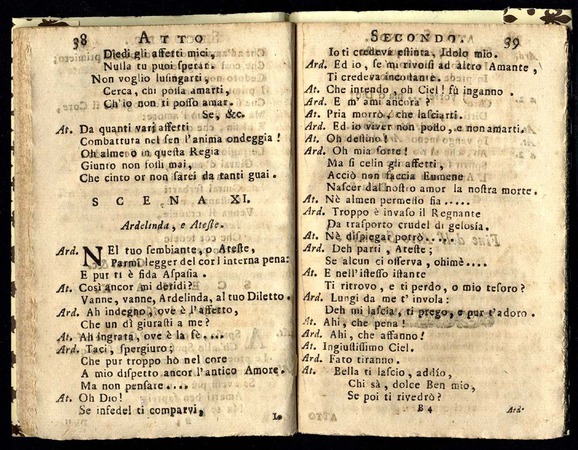 38 ATTO
Diedi gli affetti miei,
Nulla tu puoi sperar.
Non voglio lusingarti,
Cerca, chi possa amarti,
Ch'io non ti posso amar.
Se, &c.
At. Da quanti varj affetti
Combattuta nel sen l'anima ondeggia!
Oh almeno in questa Regia
Giunto non fossi mai,
Che cinto or non sarei da tanti guai.
SCENA XI.
Ardelinda, e Ateste.
Ard. NEl tuo sembiante, o Ateste,
Parmi legger del cor l'interna pena:
E pur ti è fida Aspasia.
At. Così ancor mi deridi?
Vanne, vanne, Ardelinda, al tuo Diletto.
Ard. Ah indegno, ove è l'affetto,
Che un dì giurasti a me?
At. Ah ingrata, ove è la fè....
Ard. Taci, spergiuro;
Che pur troppo hò nel core
A mio dispetto ancor l'antico Amore.
Ma non pensare....
At. Oh Dio!
Se infedel ti comparvi,
Io
SECONDO. 39
Io ti credeva estinta, Idolo mio.
Ard. Ed io, se mi rivolsi ad altro Amante,
Ti credeva incostante.
At. Che intendo, oh Ciel! fù inganno.
Ard. E m'ami ancora?
At. Pria morrò, che lasciarti.
Ard. Ed io viver non posso, e non amarti.
At. Oh destino!
Ard. Oh mia sorte!
Ma si celin gli affetti,
Acciò non faccia Eumene
Nascer dal nostro amor la nostra morte.
At. Nè almen permesso sia.....
Ard. Troppo è invaso il Regnante
Da trasporto crudel di gelosia.
At. Nè dispiegar potrò.....
Ard. Deh parti, Ateste;
Se alcun ci osserva, ohimè....
At. E nell'istesso istante
Ti ritrovo, e ti perdo, o mio tesoro?
Ard. Lungi da me t'invola:
Deh mi lascia, ti prego, e pur t'adoro.
At. Ahi, che pena!
Ard. Ahi, che affanno!
At. Ingiustissimo Ciel.
Ard. Fato tiranno.
At. Bella ti lascio, addio,
Chi sà, dolce Ben mio,
Se poi ti rivedrò?
B 4 Ard.